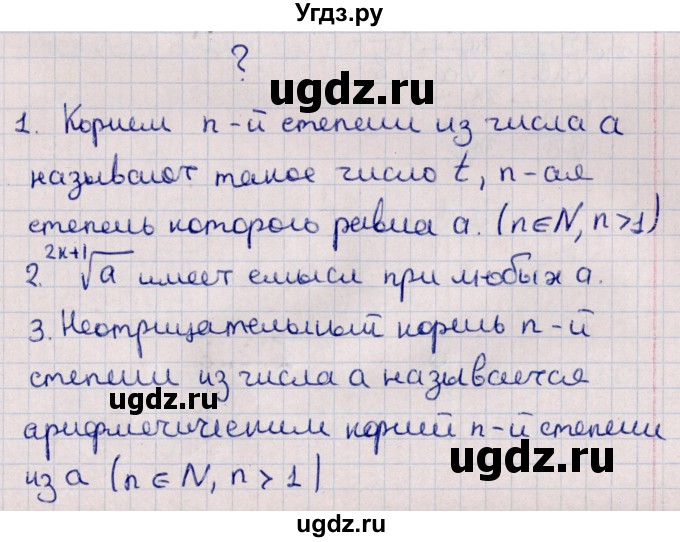 Угдз.ру
?
ugdz.ru
1. Корнем n-й степени из числа a
называют такое число t, n-ая
степень которого равна a. (n∈N, n>1)
ugdz.ru
2. ²ᵏ⁺¹√a имеет смысл при любых a.
3. Неотрицательный корень n-й
степени из числа a называется
ugdz.ru
арифмечическим корней n-й степени
ugdz.ru
из a (n∈N, n>1)
ugdz.ru